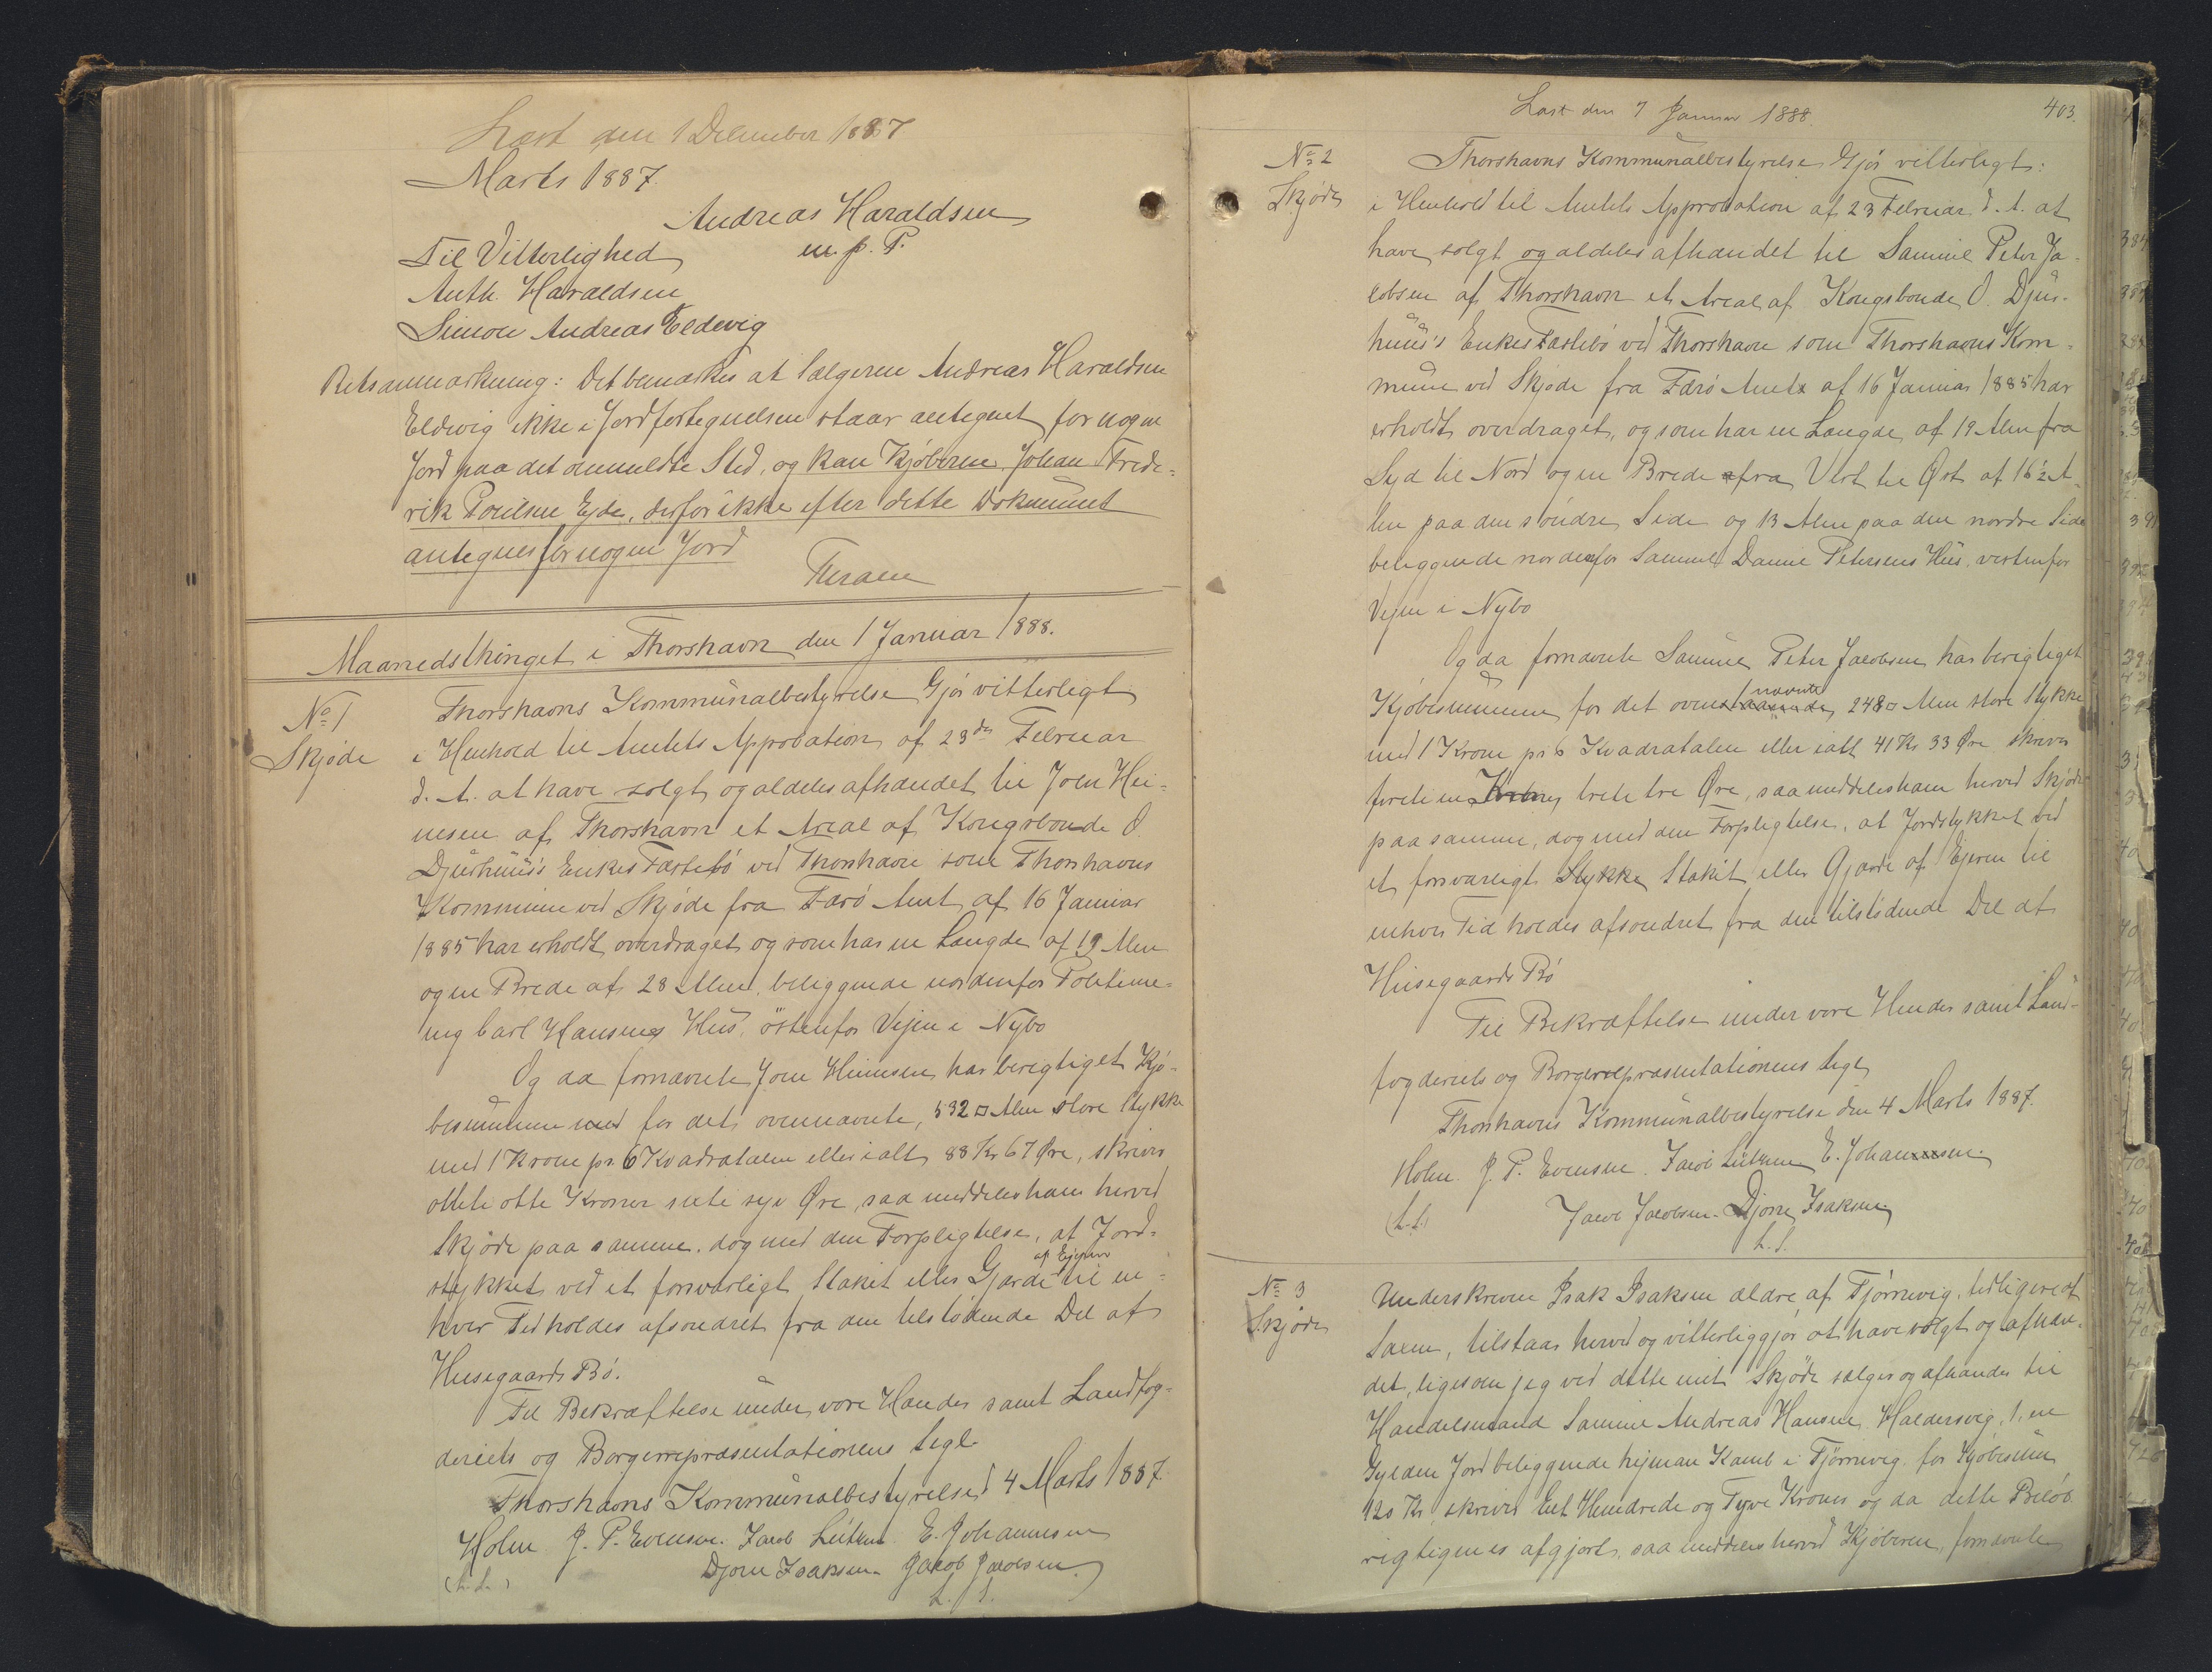 Læst den 1 December 1887
Marts 1887.
Andreas Haraldsen
Til Vitterlighed m. p. P.
Anth. Haraldsen
Simon Andreas Eldevig
Retsanmærkning: Det bemærkes at Sælgeren Andreas Haraldsen
Eldevig ikke i Jordfortegnelsen staar antegnet for nogen
Jord paa det ommeldte Sted, og kan Kjøberen, Johan Frede=
rik Poulsen Ejde, derfor ikke efter dette Dokument
antegnes for nogen Jord
Maanedsthinget i Thorshavn den 1 Januar 1888.
No 1
Skjøde
Thorshavns Kommunalbestyrelse Gjør vitterligt
i Henhold til Amtets Approbation af 23de Februar
d. A. at have solgt og aldeles afhændet til Joen Hei=
nesen af Thorshavn et Areal af Kongsbonde O.
Djurhuus's Enkes Fæstebø ved Thorshavn som Thorshavns
Kommune ved Skjøde fra Færø Amt af 16 Januar
1885 har erholdt overdraget og som har en Længde af 19 Alen
og en Brede af 28 Alen, beliggende nordenfor Politime=
ng Carl Hansens Hus, østenfor Vejen i Nybo
Og da fornævnte Joen Heinesen har berigtiget Kjø-
besummen med for det ovennævnte, 532 □ Alen store Stykke
med 1 Krone pr. 6 Kvadratalen eller ialt 88 Kr 67 Øre, skriver
otteti otte Kroner sexti syv Øre, saa meddeles ham herved
Skjøde paa samme, dog med den Forpligtelse, at Jord=
stykket ved et forsvarligt Stakit eller Gjærde af Ejeren til en=
hver Tid holdes afsondret fra den tilstødende Del af
Husegaards Bø.
Til Bekræftelse under vore Hænder samt Landfog=
deriets og Borgerrepræsentationens Segl.
Thorshavns Kommunalbestyrelse d 4 Marts 1887.
Holm J. P. Evensen. Jacob Lützen E. Johannesen
(L.S.) Djoni Isaksen. Jakob Jacobsen.
L. S.
Læst den 7 Januar 1888. 403.
No 2
Skjøde
Thorshavns Kommunalbestyrelse Gjør vitterligt:
i Henhold til Amtets Approbation af 23 Februar d. A. at
have solgt og aldeles afhændet til Samuel Peter Ja-
cobsen af Thorshavn et Areal af Kongsbonde O. Djur-
huus's Enkes Fæstebø ved Thorshavn som Thorshavns Kom=
mune ved Skjøde fra Færø Amt af 16 Januar 1885 har
erholdt overdraget, og som har en Længde af 19 Alen fra
Syd til Nord og en Brede fra Vest til Øst af 16½ A=
len paa den søndre Side og 13 Alen paa den nordre Side
beliggende nordenfor Samuel Danie Petersens Hus, vestenfor
Vejen i Nybo
Og da fornævnte Samuel Peter Jacobsen har berigtiget
Kjøbesummen for det ovennævnte 248 □ Alen store Stykke
med 1 Krone pr 6 Kvadratalen eller ialt 41 Kr. 33 Øre skriver
forti en Krone treti tre Øre, saa meddeles ham herved Skjøde
paa samme, dog med den Forpligtelse, at Jordstykket ved
et forsvarligt Stykke Stakit eller Gjærde af Ejeren til
enhver Tid holdes afsondret fra den tilstødende Del af
Husegaards Bø
Til Bekræftelse under vore Hænder samt Land-
fogderiets og Borgerrepræsentationens Segl
Thorshavns Kommunalbestyrelse den 4 Marts 1887.
Holm. J. P. Evensen. Jacob Lützen E. Johannesen.
(L.S.) Jacob Jacobsen. Djoni Isaksen
L. S.
No 3
Skjøde
Underskrevne Isak Isaksen ældre af Tjørnevig, tidligere af
Saxen, tilstaar herved og vitterliggjør at have solgt og afhæn-
det, ligesom jeg ved dette mit Skjøde sælger og afhænder til
Handelsmand Samuel Andreas Hansen, Haldersvig, 1, en
Gylden Jord beliggende hejman Kamb i Tjørnevig for Kjøbesum
120 Kr. skriver Eet Hundrede og Tyve Kroner og da dette Beløb
rigtigen er afgjort, saa meddeles herved Kjøberen, fornævnte